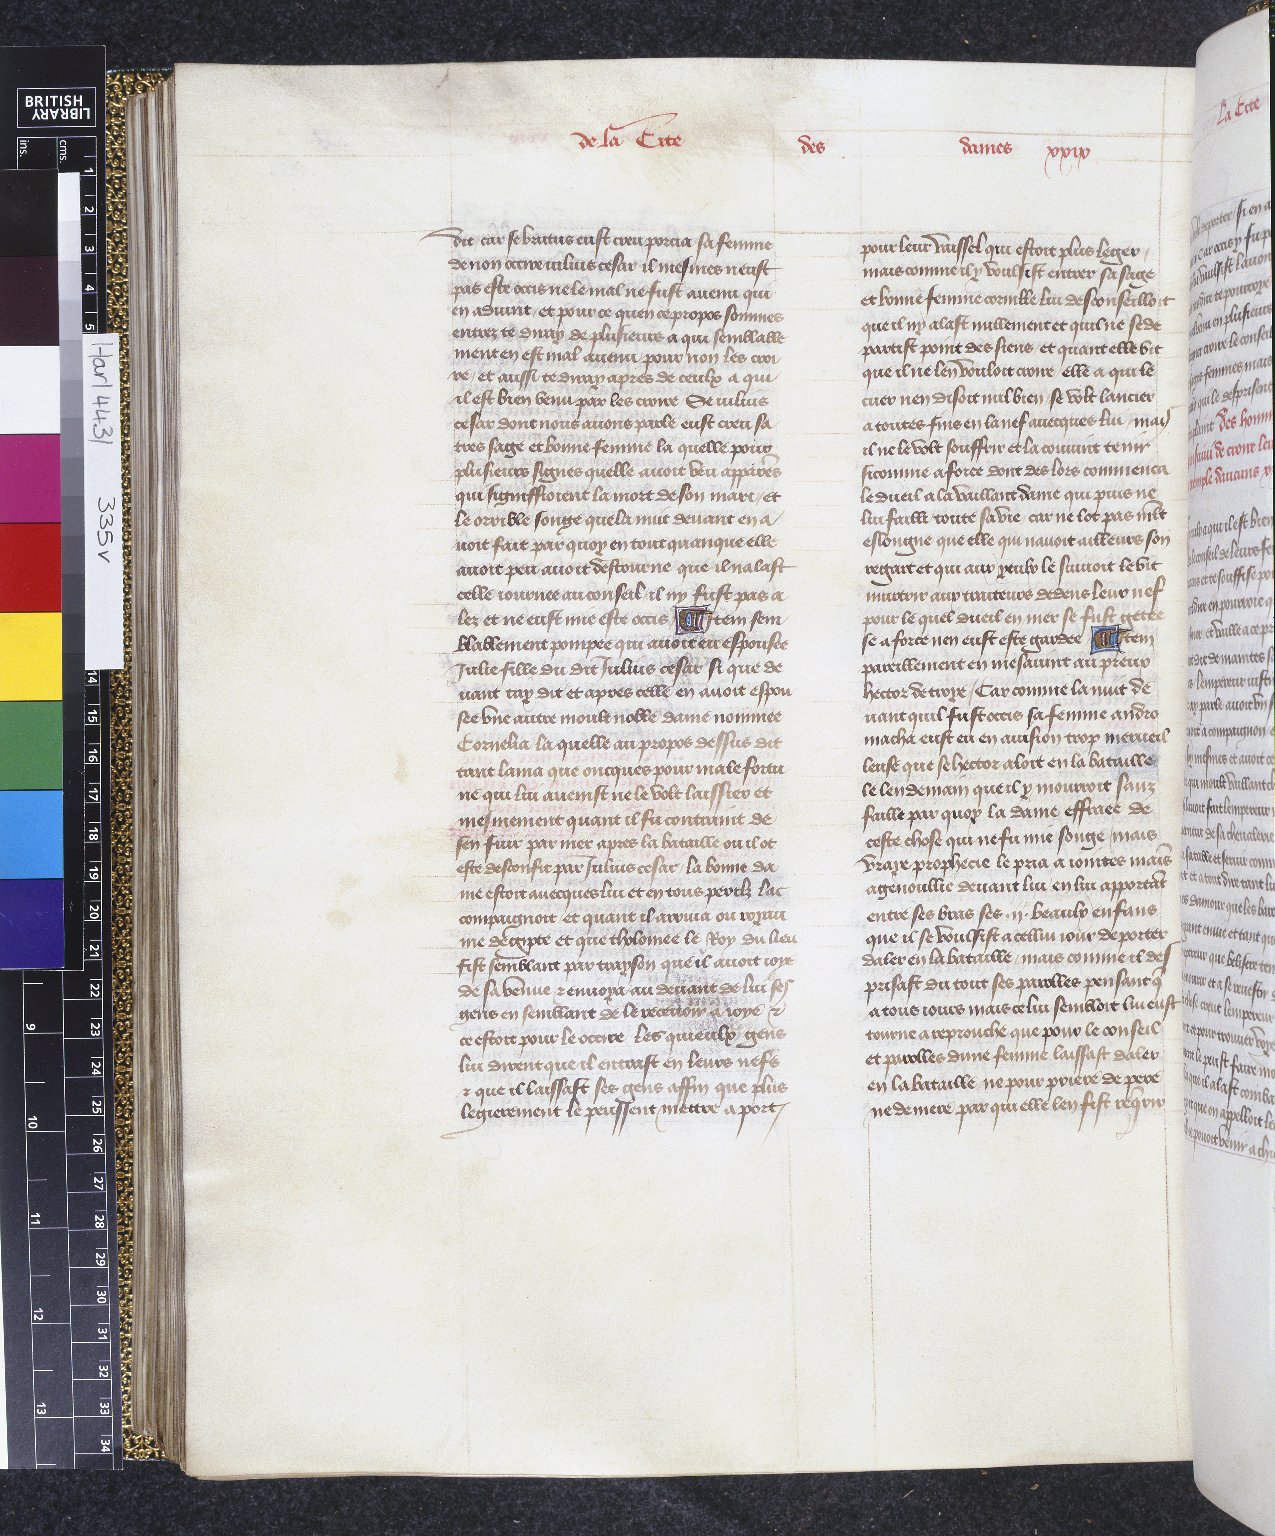 de la Cite des dames xxix
dit car se brutus eust creu porcia sa femme
de non occire iulius cesar il mesmes neust
pas este occis ne le mal ne fust auenu qui
en aduint / et pour ce quen ce propos sommes
entrez te diray de plusieurs a qui semblable
ment en est mal auenu pour non les croi
re / et aussi te diray apres de ceulx a qui
il est bien venu par les croire Se iulius
cesar dont nous auons parle eust creu sa
tres sage et bonne femme la quelle pour
plusieurs signes quelle auoit veu apparoir
qui signiffioient la mort de son mari / et
le orrible songe que la nuit deuant en a
uoit fait par quoy en tout quanque elle
auoit peu auoit destourne que il nalast
celle iournee au conseil / il ny fust pas a
lez et ne eust mie este occis / Item sem
blablement pompee qui auoit eu espousee
Iulie fille du dit Iulius cesar si que de
uant tay dit et apres celle en auoit espou
see vne autre moult noble dame nommee
Cornelia la quelle au propos dessus dit
tant lama que oncques pour male fortu
ne qui lui auenist ne le volt laissier et
mesmement quant il fu contraint de
sen fuir par mer apres la bataille ou il ot
este desconfit par Iulius cesar / la bonne da
me estoit auecques lui et en tous perilz lac
compaignoit et quant il arriua ou royau
me degipte et que tholomee le Roy du lieu
fist semblant par trayson que il auoit ioye
de sa venue & enuoya au deuant de lui ses
gens en semblant de le receuoir a ioye &
ce estoit pour le occire les quieulx gens
lui dirent que il entrast en leurs nefs
& que il laissast ses gens affin que plus
legierement le peussent mettre a port
pour leur vaissel qui estoit plus leger /
mais comme il y voulsist entrer sa sage
et bonne femme cornille lui desconseilloit
que il ny alast nullement et quil ne se de
partist point des siens / et quant elle vit
que il ne len vouloit croire elle a qui le
cuer nen disoit nul bien / se volt lancier
a toutes fins en la nef auecques lui / mais
il ne le volt souffrir et la couuint tenir
si comme a force dont des lors commenca
le dueil a la vaillant dame qui puis ne
lui failli toute sa vie / car ne lot pas mlt
eslongne que elle qui nauoit ailleurs son
regart et qui aux yeulx le suiuoit le vit
murtrir aux traiteurs dedens leur nef
pour le quel dueil en mer se fust gettee
se a force nen eust este gardee Item
pareillement en mesauint au preux
hector de troye / Car comme la nuit de
uant quil fust occis sa femme andro
macha eust eu en auision trop merueil
leuse que se hector aloit en la bataille
le lendemain que il y mourroit sanz
faille par quoy la dame effraee de
ceste chose qui ne fu mie songe / mais
vraye prophecie le pria a iointes mains
agenoullie deuant lui en lui apportant
entre ses bras ses .ij. beaulx enfans
que il se voulsist a cellui iour deporter
daler en la bataille / mais comme il des
prisast du tout ses parolles pensant q̃
a tous iours mais ce lui sembloit lui eust
tourne a reprouche que pour le conseil
et parolles dune femme laissast daler
en la bataille ne pour priere de pere
ne de mere par qui elle len fist req̃rir
La Cite
BRITISH
LIBRARY
ins.
cms.
Harl 4431
335v